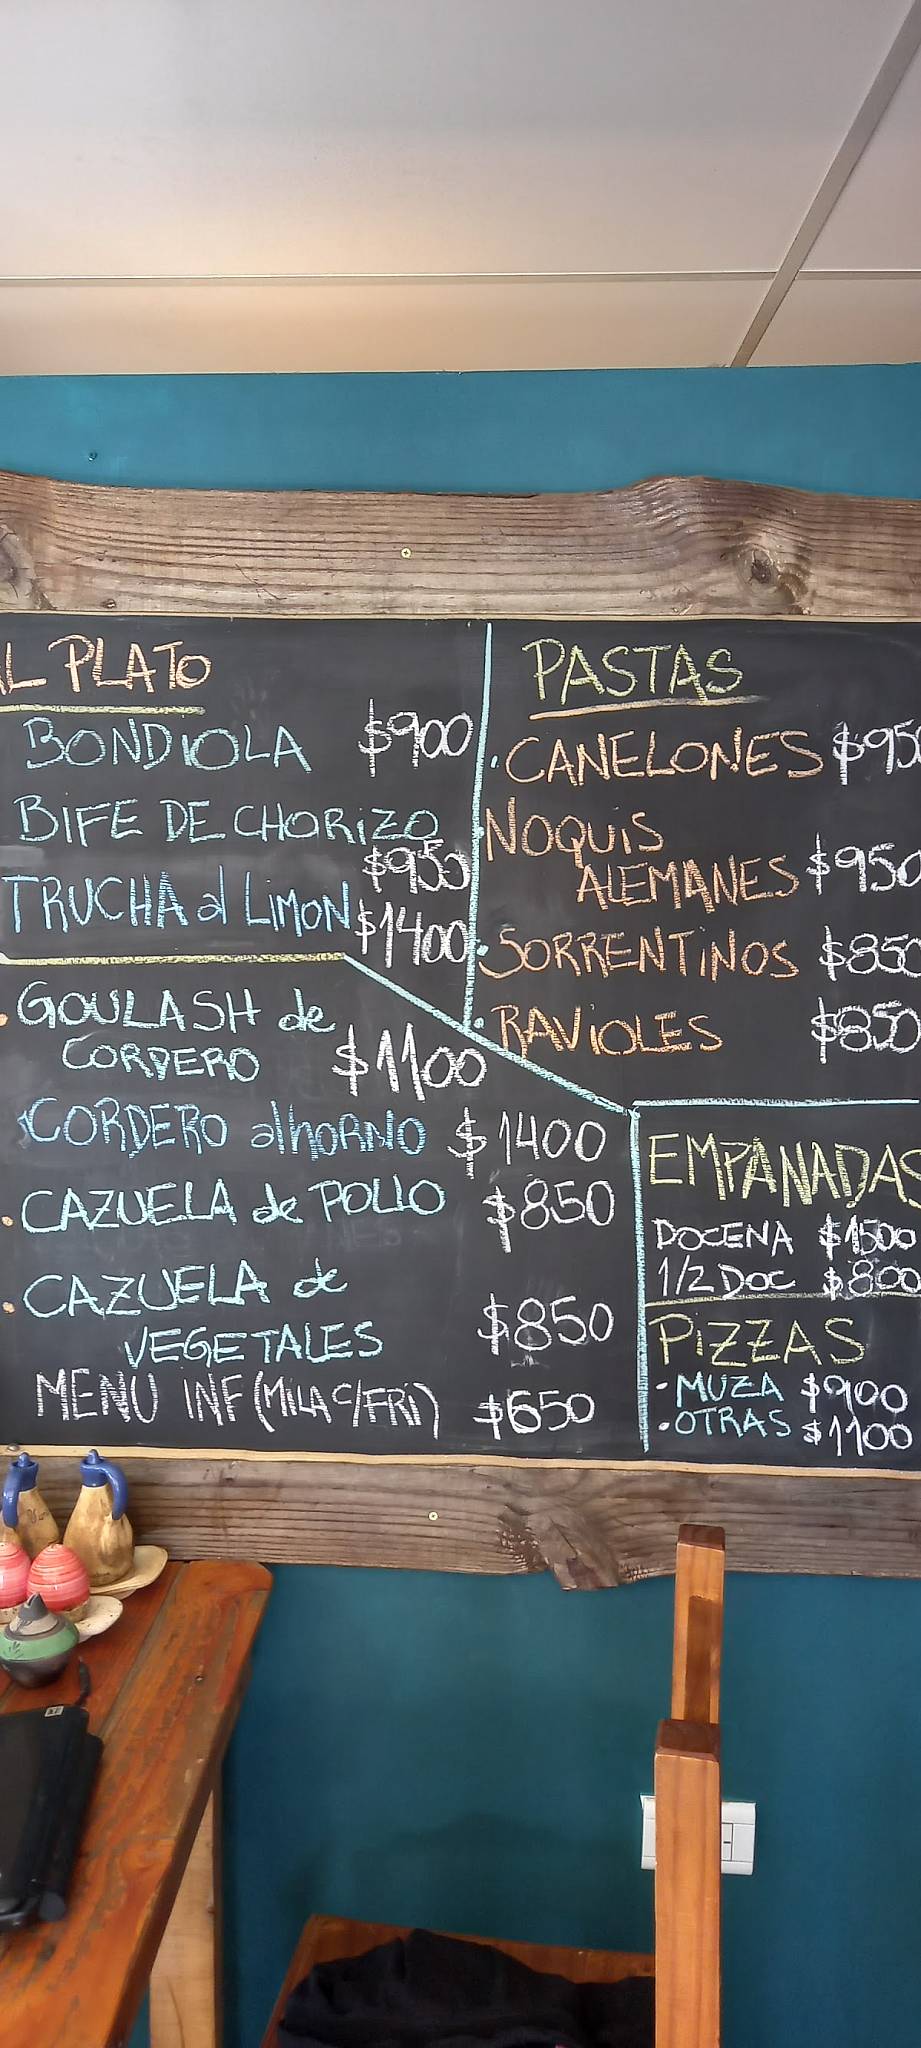 AL PLATO
BONDIOLA $900
BIFE DE CHORIZO
$950
TRUCHA al LIMON $1400
GOULASH de
CORDERO $1100
CORDERO al hORNO $1400
CAZUELA de POLLO $850
CAZUELA de
VEGETALES $850
MENU INF (MILA C/FRI) $650
PASTAS
CANELONES $950
ÑOQUIS
ALEMANES $950
SORRENTINOS $850
RAVIOLES $850
EMPANADAS
DOCENA $1500
1/2 DOC $800
PIZZAS
MUZA $900
OTRAS $1100